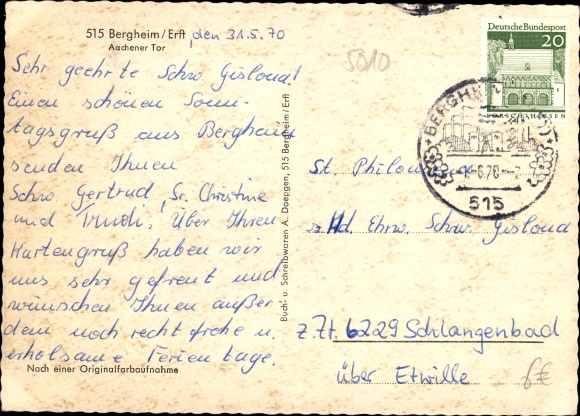 515 Bergheim/Erft, den 31.5.70
Aachener Tor
Sehr geehrte Schw. Gislond!
Einen schönen Sonn-
tagsgruß aus Bergheim
senden Ihnen
Schw. Gertrud, Sr. Christine
und Trudi. Über Ihren
Kartengruß haben wir
uns sehr gefreut und
wünschen Ihnen außer-
dem noch recht frohe u.
erholsame Ferientage.
Nach einer Originalfarbaufnahme
Buch- u. Schreibwaren A. Doepgen, 515 Bergheim/Erft
5010
Deutsche Bundespost
20
515
St.
z. Hd. Ehrw. Schw. Gislond
z. Zt. 6229 Schlangenbad
über Eltville
6€